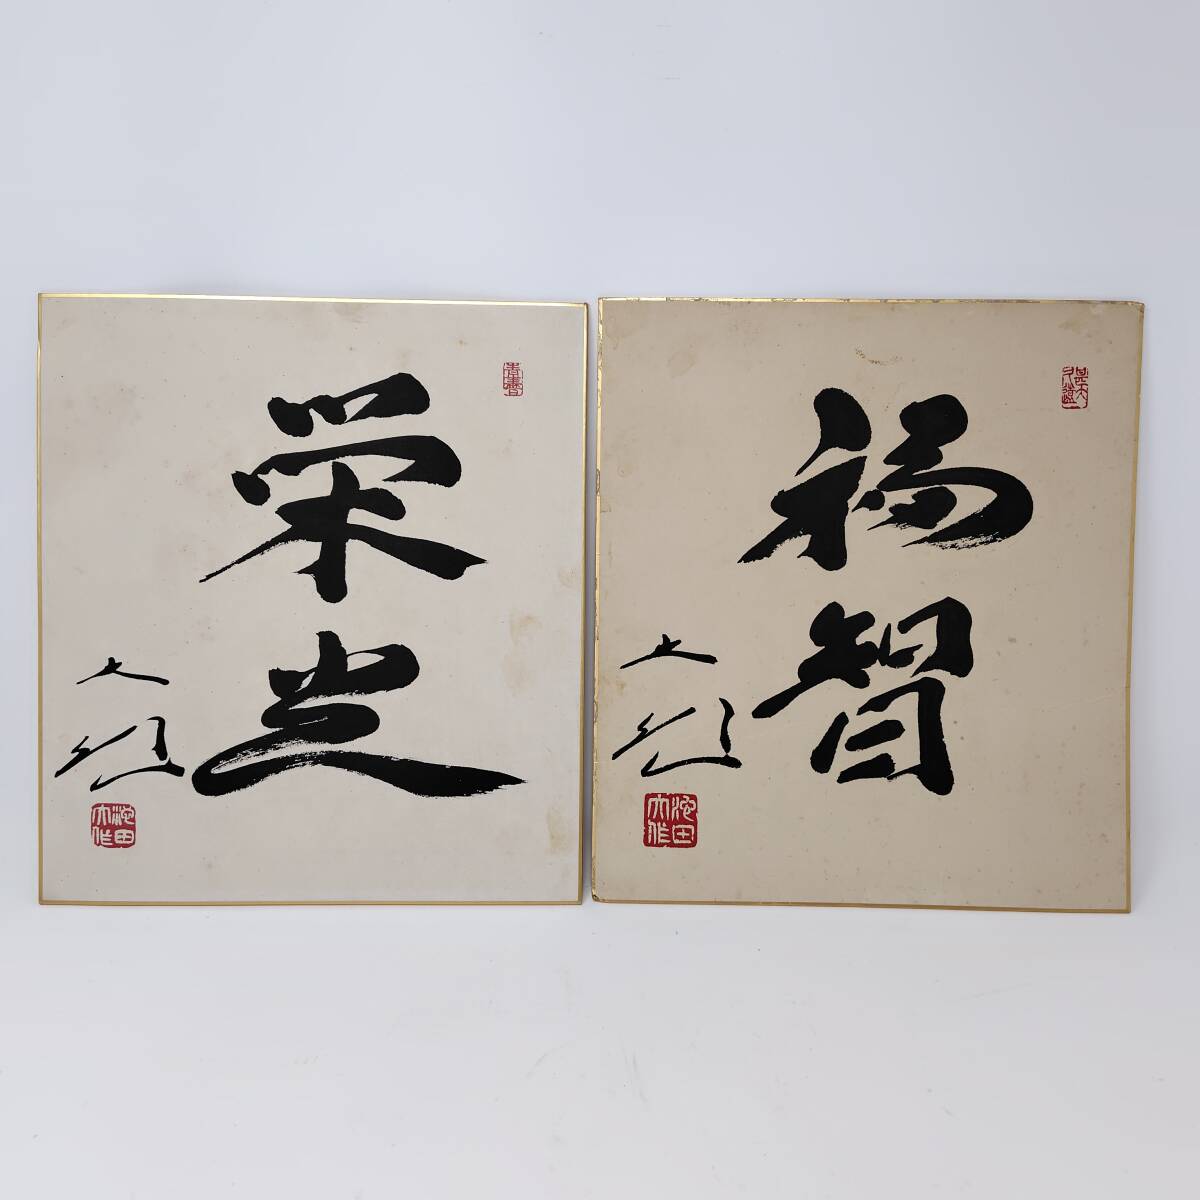 栄光
大作
池田
大作
福智
大作
池田
大作